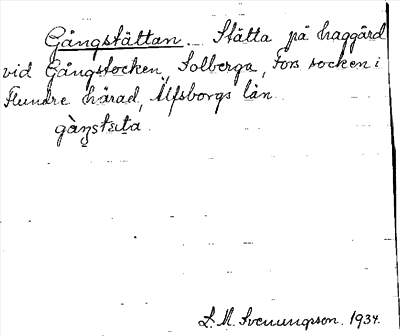 Gångstättan. Stätta på haggård
vid Gångstocken, Solberga, Fors socken i
Flundre härad, Älfsborgs län.
gàŋstɛta.
S. M. Svenungsson. 1934.